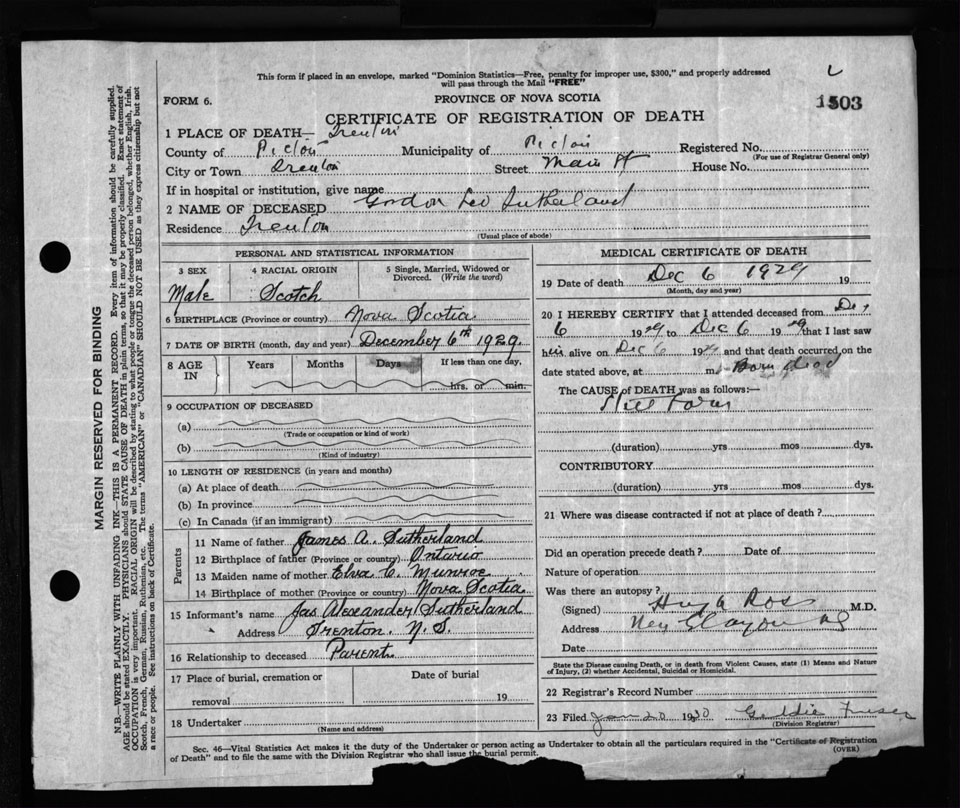 This form if placed in an envelope, marked "Dominion Statistics—Free, penalty for improper use, $300," and properly addressed
will pass through the Mail "FREE"
FORM 6.
PROVINCE OF NOVA SCOTIA
1503
CERTIFICATE OF REGISTRATION OF DEATH
1 PLACE OF DEATH— Trenton
County of Pictou Municipality of Pictou Registered No.
(For use of Registrar General only)
City or Town Trenton Street Main St House No.
If in hospital or institution, give name
2 NAME OF DECEASED Gordon Leo Sutherland
Residence Trenton
(Usual place of abode)
PERSONAL AND STATISTICAL INFORMATION
3 SEX 4 RACIAL ORIGIN 5 Single, Married, Widowed or
Divorced. (Write the word)
Male Scotch
6 BIRTHPLACE (Province or country) Nova Scotia
7 DATE OF BIRTH (month, day and year) December 6th 1929.
8 AGE IN Years Months Days If less than one day,
hrs. or min.
9 OCCUPATION OF DECEASED
(a)
(Trade or occupation or kind of work)
(b)
(Kind of industry)
10 LENGTH OF RESIDENCE (in years and months)
(a) At place of death
(b) In province
(c) In Canada (if an immigrant)
Parents
11 Name of father James A. Sutherland
12 Birthplace of father (Province or country) Ontario
13 Maiden name of mother Elva C. Munroe
14 Birthplace of mother (Province or country) Nova Scotia
15 Informant's name Jas Alexander Sutherland
Address Trenton. N. S.
16 Relationship to deceased Parent
17 Place of burial, cremation or Date of burial
removal 19
18 Undertaker
(Name and address)
MEDICAL CERTIFICATE OF DEATH
19 Date of death Dec 6 1929 19
(Month, day and year)
20 I HEREBY CERTIFY that I attended deceased from Dec
6 1929 to Dec 6 1929 that I last saw
him alive on Dec 6 1929 and that death occurred on the
date stated above, at m. Born dead
The CAUSE of DEATH was as follows:—
Still born
(duration) yrs mos dys.
CONTRIBUTORY
(duration) yrs mos dys.
21 Where was disease contracted if not at place of death?
Did an operation precede death? Date of
Nature of operation
Was there an autopsy?
(Signed) Hugh Ross M.D.
Address New Glasgow NS
Date
State the Disease causing Death, or in death from Violent Causes, state (1) Means and Nature
of Injury, (2) whether Accidental, Suicidal or Homicidal.
22 Registrar's Record Number
23 Filed Jan 20 1930 Fraser
(Division Registrar)
Sec. 46—Vital Statistics Act makes it the duty of the Undertaker or person acting as Undertaker to obtain all the particulars required in the "Certificate of Registration
of Death" and to file the same with the Division Registrar who shall issue the burial permit.
(OVER)
MARGIN RESERVED FOR BINDING
N.B.—WRITE PLAINLY WITH UNFADING INK—THIS IS A PERMANENT RECORD. Every item of information should be carefully supplied.
AGE should be stated EXACTLY. PHYSICIANS should STATE CAUSE OF DEATH in plain terms, so that it may be properly classified. Exact statement of
OCCUPATION is very important. RACIAL ORIGIN will be described by stating to what people or tongue the deceased person belonged, whether English, Irish,
Scotch, French, German, Russian, Ruthenian, etc. The terms "AMERICAN" or "CANADIAN" SHOULD NOT BE USED as they express citizenship but not
a race or people. See instructions on back of Certificate.